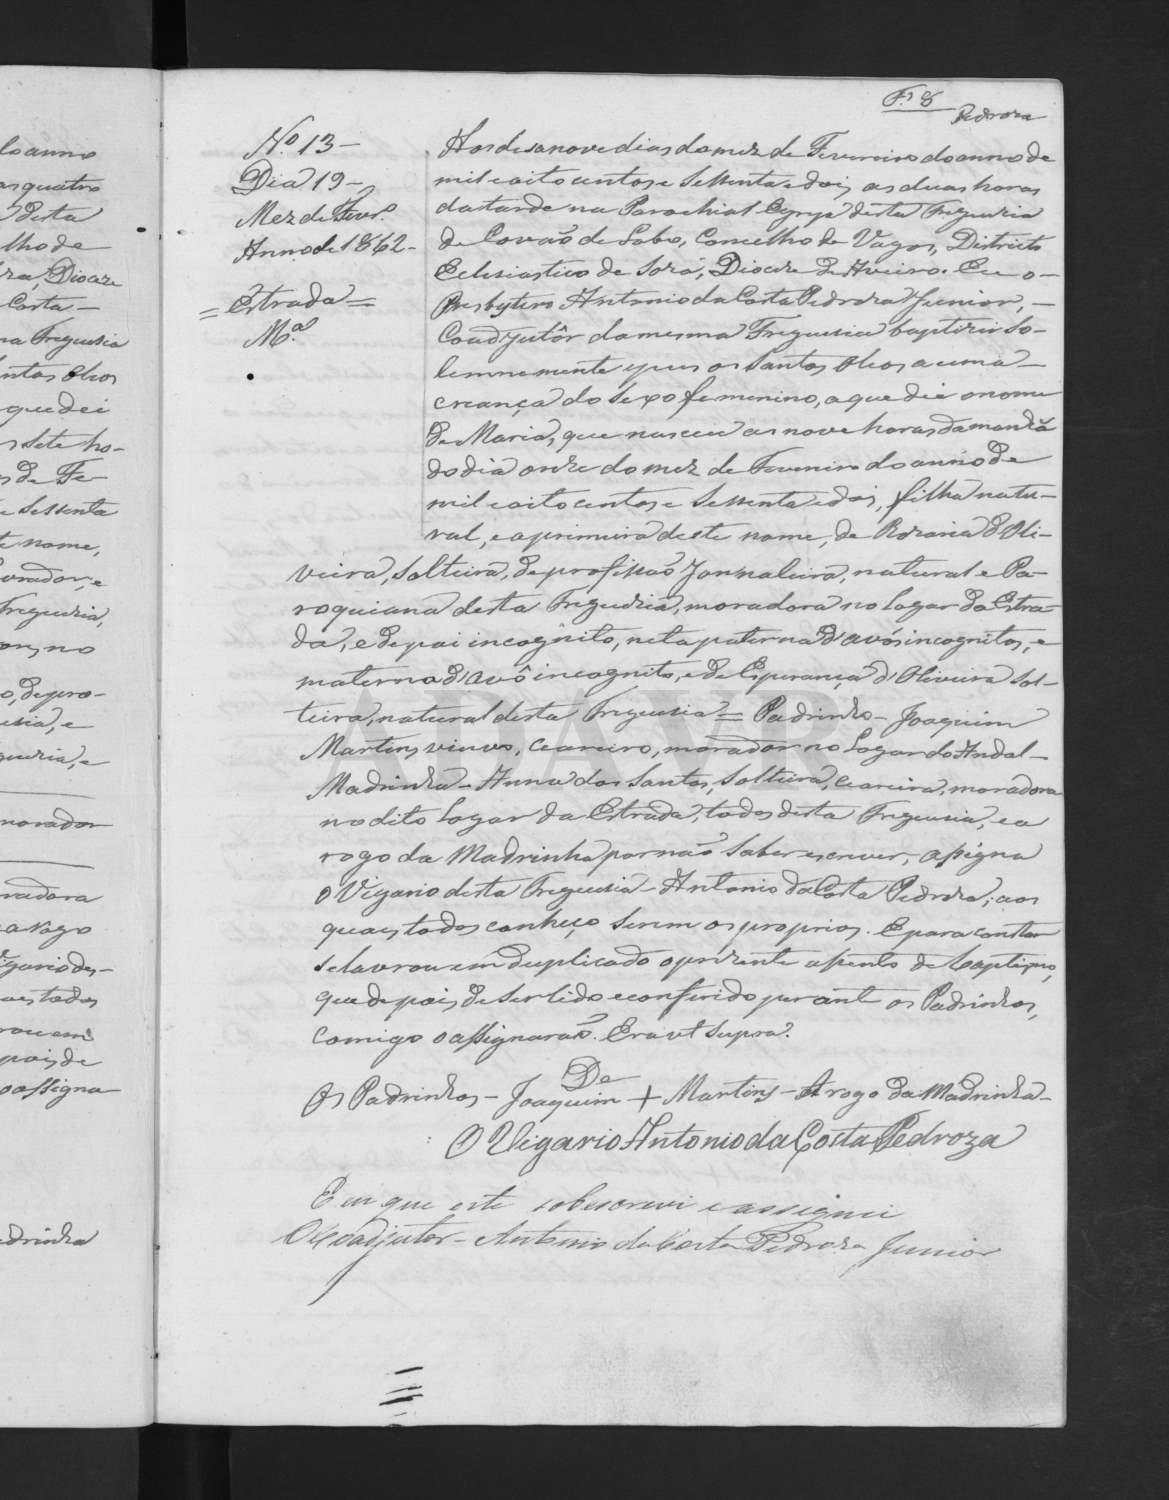 F. 8
Pedroza
Nº 13 –
Dia 19 –
Mez de Fevrº
Anno de 1862 –
= Estrada =
Mª
Aos desanove dias do mez de Fevereiro do anno de
mil e oito centos e sessenta e dois, as duas horas
da tarde na Parochial Egreja desta Freguezia
de Covão do Lobo, Concelho de Vagos, Districto
Eclesiastico de Soza, Diocese de Aveiro. Eu o –
Presbytero Antonio da Costa Pedroza Junior, –
Coadjutôr da mesma Freguezia baptizei So-
lemnemente e puz os Santos Oleos a uma –
creança do Sexo femenino, a que dei o nome
de Maria, que nasceu as nove horas da manhã
do dia onze do mez de Fevereiro do anno de
mil e oito centos e Sessenta e dois, filha natu-
ral, e a primeira deste nome, de Rozaria d'Oli-
veira, Solteira, de profissão Jornaleira, natural e Pa-
roquiana desta Freguezia, moradora no lugar da Estra-
da, e de pai incognito, neta paterna d'avós incognitos, e
materna d'avô incognito, e de Esperança d'Oliveira Sol-
teira, natural desta Freguezia = Padrinho – Joaquim
Martins, viuvo, ceareiro, morador no Lugar do Andal –
Madrinha – Anna dos Santos, Solteira, ceareira, moradora
no dito Lugar da Estrada, todos desta Freguezia, e a
rogo da Madrinha por não Saber escrever, assigna
o Vigario desta Freguezia – Antonio da Costa Pedroza; aos
quaes todos conheço Serem os proprios. E para constar
se lavrou em duplicado o prezente assento de baptismo,
que depois de Ser lido e conferido perante os Padrinhos,
comigo o assignarão. Era ut Supra.
De
Os Padrinhos – Joaquim + Martins – A rogo da Madrinha –
O Vigario Antonio da Costa Pedroza
E eu que este sobescrevi e assignei
O Coadjutor – Antonio da Costa Pedroza Junior
ADAVR